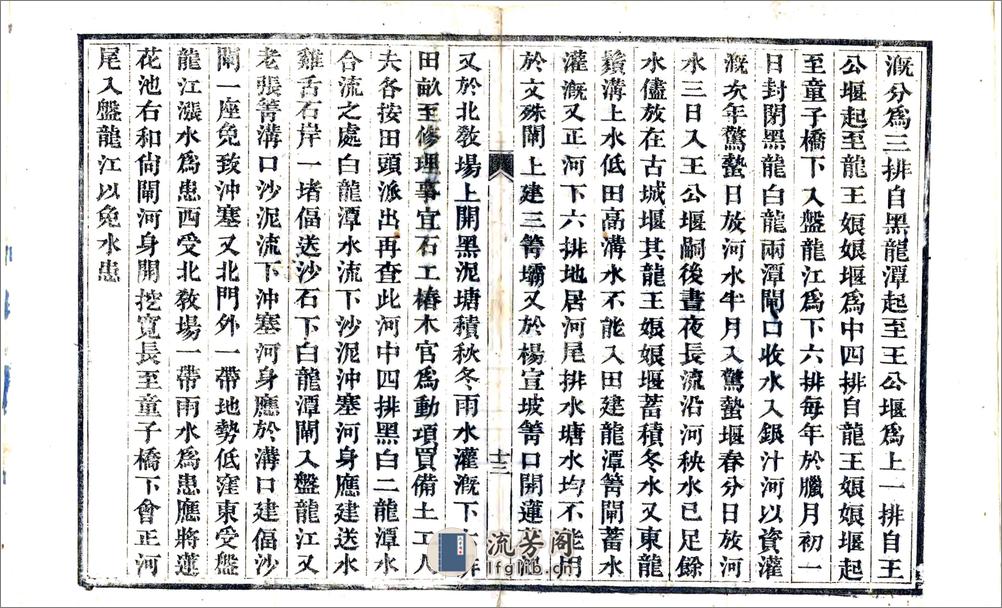 漑分爲三排自黑龍潭起至王公堰爲上一排自王
公堰起至龍王娘娘堰爲中四排自龍王娘娘堰起
至童子橋下入盤龍江爲下六排每年於臘月初一
日封閉黑龍白龍兩潭閘口收水入銀汁河以資灌
漑次年驚蟄日放河水半月入驚蟄堰春分日放河
水三日入王公堰嗣後晝夜長流沿河秧水已足餘
水儘放在古城堰其龍王娘娘堰蓄積冬水又東龍
鬚溝上水低田高溝水不能入田建龍潭箐閘蓄水
灌漑又正河下六排地居河尾排水塘水均不能用
於文殊閘上建三箐壩又於楊宣坡箐口開蓮
十三
又於北敎場上開黑泥塘積秋冬雨水灌漑下
田畝至修理事宜石工樁木官爲動項買備土工人
夫各按田頭派出再查此河中四排黑白二龍潭水
合流之處白龍潭水流下沙泥沖塞河身應建送水
雞舌石岸一堵偪送沙石下白龍潭閘入盤龍江又
老張箐溝口沙泥流下沖塞河身應於溝口建偪沙
閘一座免致沖塞又北門外一帶地勢低窪東受盤
龍江漲水爲患西受北敎場一帶雨水爲患應將蓮
花池右和尙閘河身開挖寬長至童子橋下會正河
尾入盤龍江以免水患
流芳阁
lfglib.cn